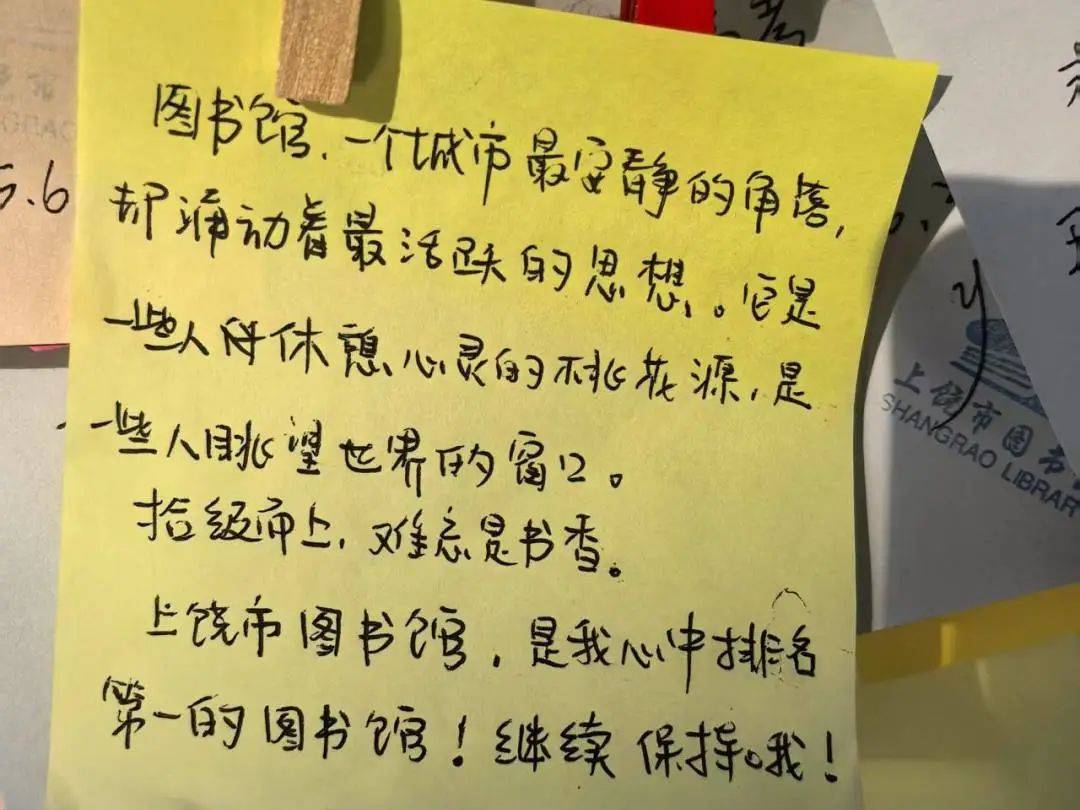 图书馆,一个城市最安静的角落,
却涌动着最活跃的思想。它是
一些人休憩心灵的桃花源,是
一些人眺望世界的窗口。
拾级而上,难忘是书香。
上饶市图书馆,是我心中排名
第一的图书馆!继续保持哦!
5.6
上饶市图书
SHANGRAO LIBRAR